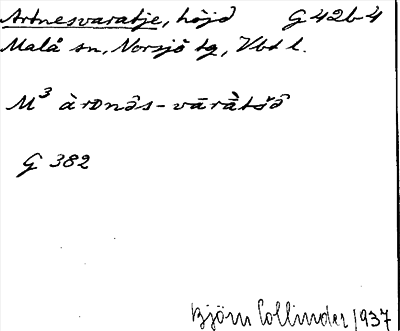 Artnesvaratje, höjd G 42b4
Malå sn, Norsjö tg, Vbt l.
M³ àrᴅnês-vārằtšê
G 382
Björn Collinder 1937